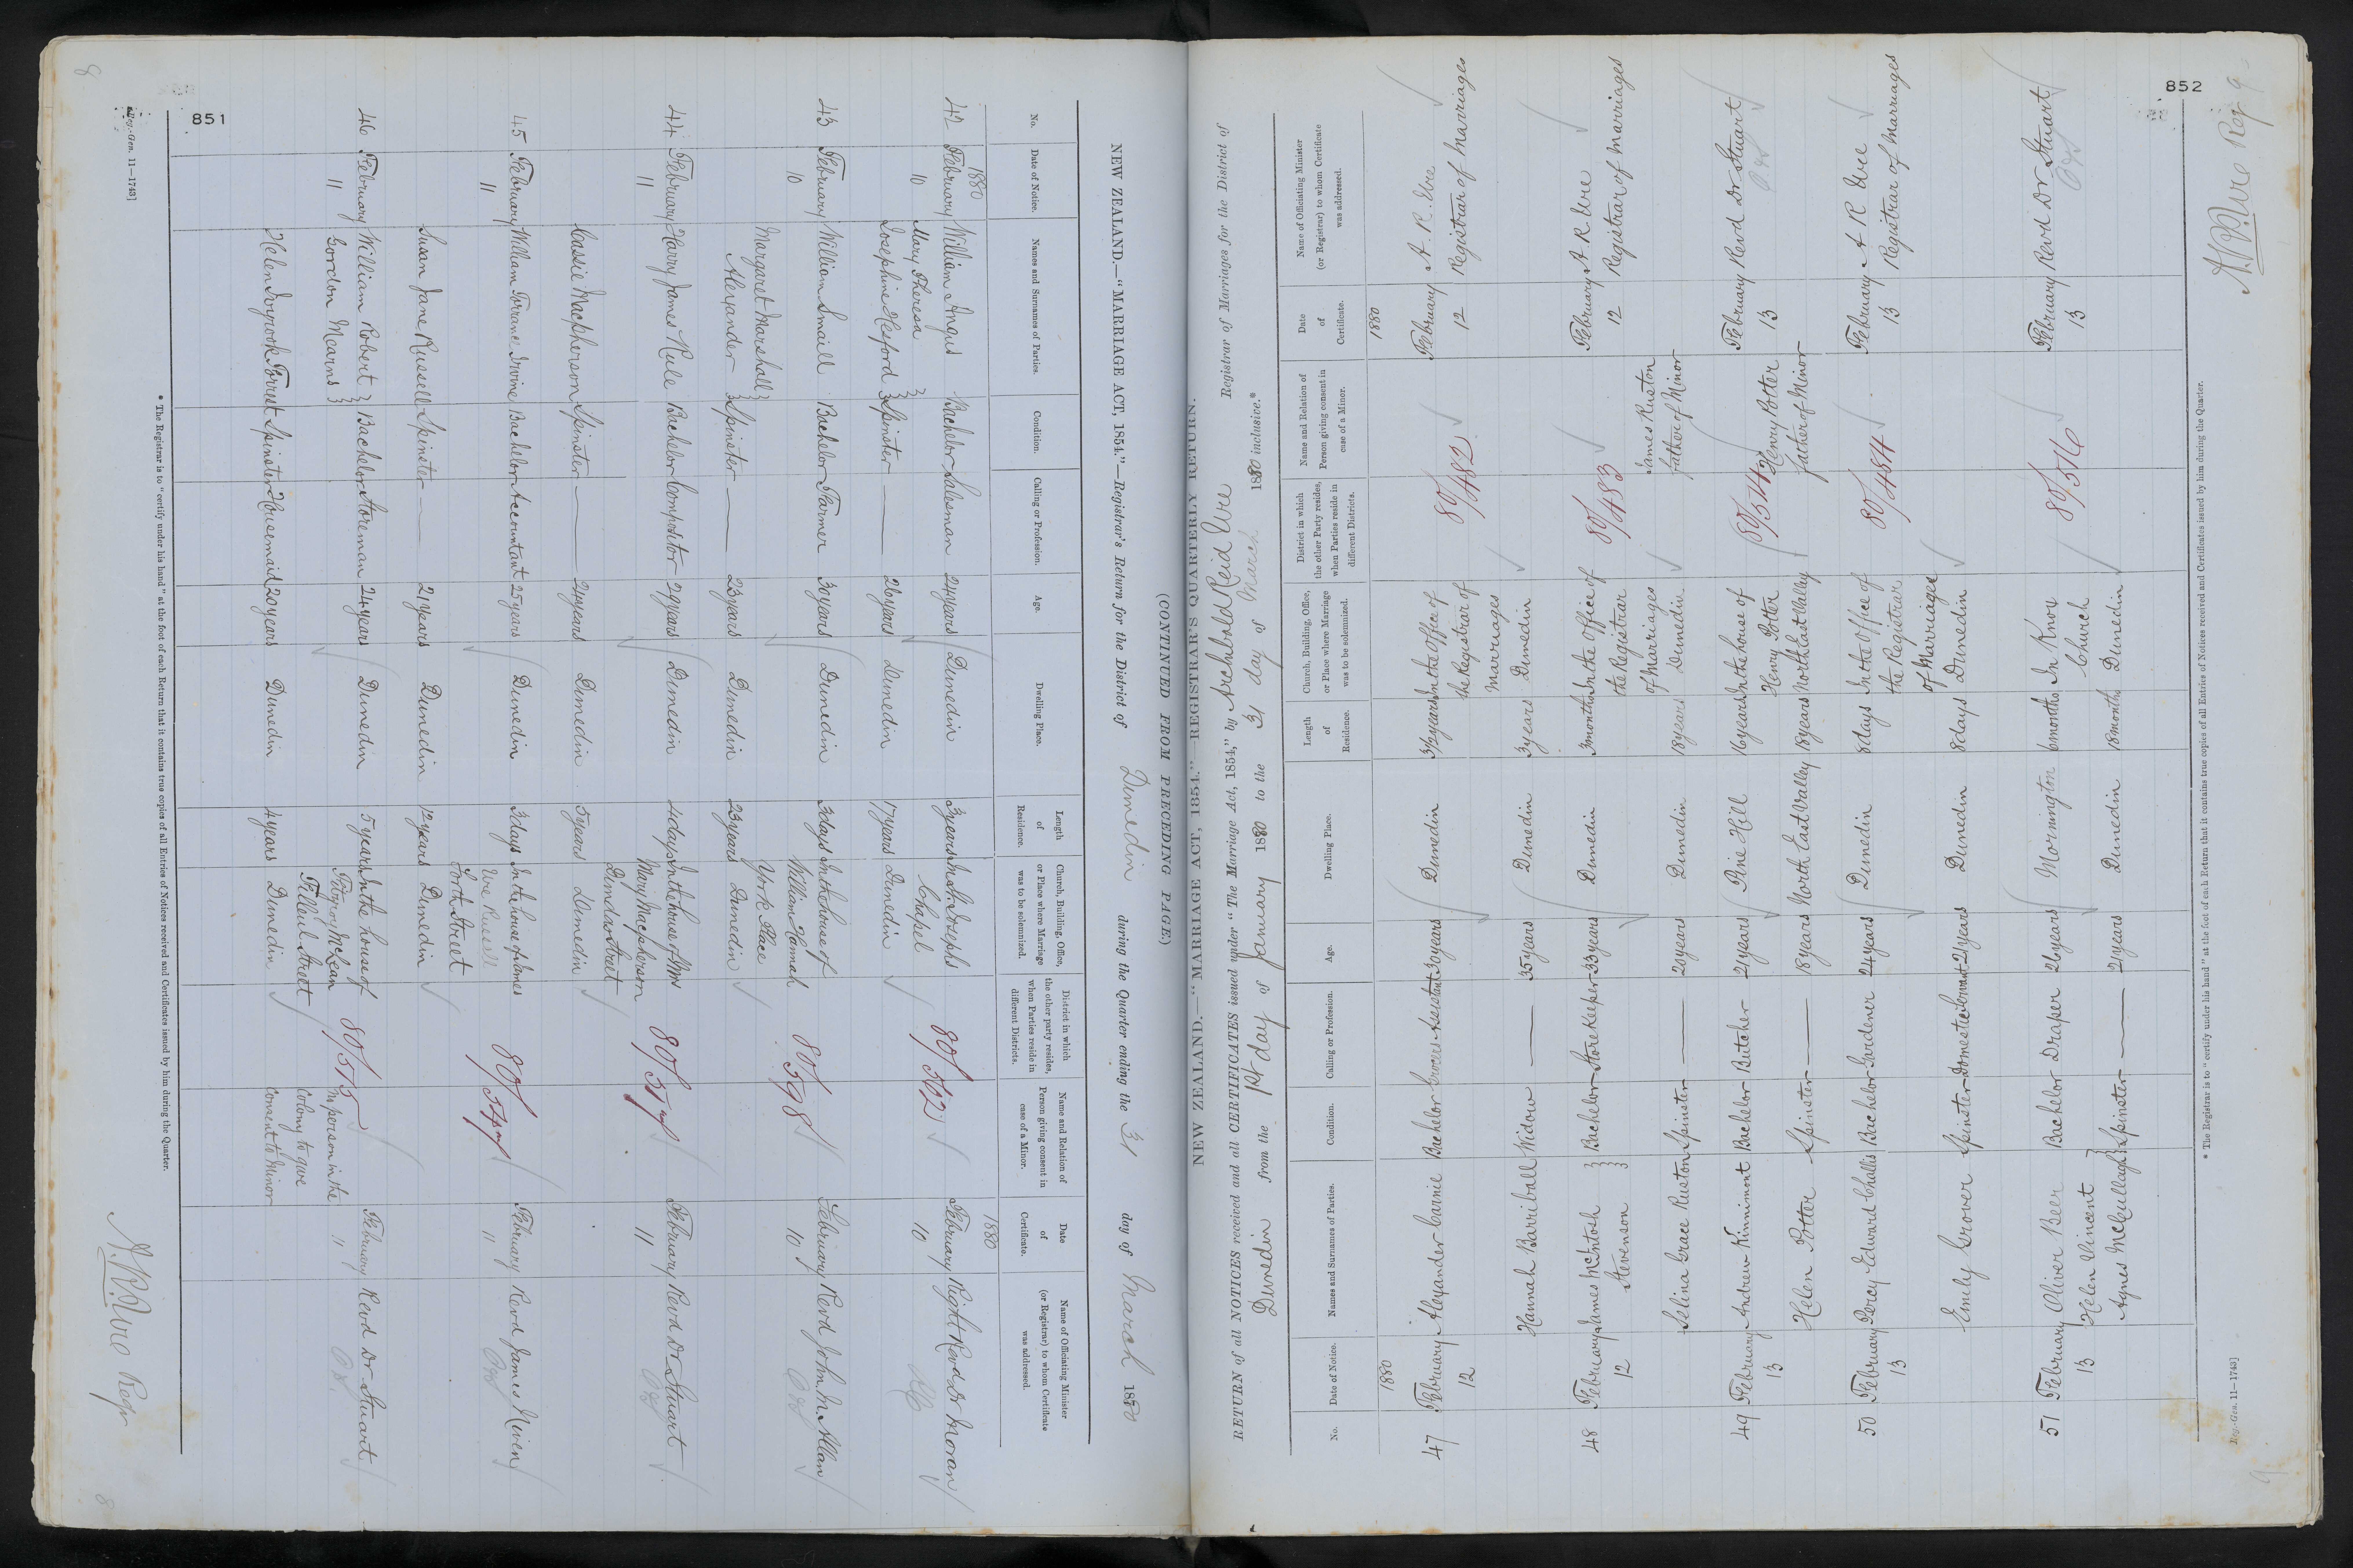 851
NEW ZEALAND.—"MARRIAGE ACT, 1854."—Registrar's Return for the District of Dunedin during the Quarter ending the 31 day of March 1880
(CONTINUED FROM PRECEDING PAGE)
No. Date of Notice. Names and Surnames of Parties. Condition. Calling or Profession. Age. Dwelling Place. Length of Residence. Church, Building, Office, or Place where Marriage was to be solemnized. District in which the other party resides, when Parties reside in different Districts. Name and Relation of Person giving consent in case of a Minor. Date of Certificate. Name of Officiating Minister (or Registrar) to whom Certificate was addressed.
1880 1880
42 February William Angus Bachelor Salesman 24 years Dunedin 3 years In St. Josephs 80/562 February Right Revd Dr Moran
10 Mary Theresa Chapel 10
Josephine Hesford Spinster — 26 years Dunedin 17 years Dunedin
43 February William Smaill Bachelor Farmer 30 years Dunedin 3 days In the house of 80/598 February Revd John M. Allan
10 William Hannah 10
Margaret Marshall York Place
Alexander Spinster — 23 years Dunedin 23 years Dunedin
44 February Harry James Rule Bachelor Compositor 29 years Dunedin 4 days In the house of Mrs February Revd Dr Stuart
11 Mary Macpherson 11
Dundas Street
Cassie Macpherson Spinster — 24 years Dunedin 5 years Dunedin
45 February William Torrane Irvine Bachelor Accountant 25 years Dunedin 3 days In the house of James February Revd James Niven
11 Russell 11
Forth Street
Susan Jane Russell Spinster — 21 years Dunedin 12 years Dunedin
46 February William Robert Bachelor Storeman 24 years Dunedin 5 years In the house of 80/515 February Revd Dr Stuart
11 Gordon Mearns McLean No person in the 11
Filleul Street Colony to give
Helen Forrest Spinster Housemaid 20 years Dunedin 4 years Dunedin consent to Minor
A. R. Ure Regr
* The Registrar is to "certify under his hand" at the foot of each Return that it contains true copies of all Entries of Notices received and Certificates issued by him during the Quarter.
Reg.-Gen. 11—1743]
852
NEW ZEALAND.—"MARRIAGE ACT, 1854."—REGISTRAR'S QUARTERLY RETURN.
RETURN of all NOTICES received and all CERTIFICATES issued under "The Marriage Act, 1854," by Archibald Reid Ure Registrar of Marriages for the District of
Dunedin from the 1st day of January 1880 to the 31 day of March 1880 inclusive.*
No. Date of Notice. Names and Surnames of Parties. Condition. Calling or Profession. Age. Dwelling Place. Length of Residence. Church, Building, Office, or Place where Marriage was to be solemnized. District in which the other Party resides, when Parties reside in different Districts. Name and Relation of Person giving consent in case of a Minor. Date of Certificate. Name of Officiating Minister (or Registrar) to whom Certificate was addressed.
1880 1880
47 February Alexander Cairnie Bachelor Grocers Assistant 30 years Dunedin 3½ years In the Office of 80/482 February A. R. Ure
12 the Registrar of 12 Registrar of Marriages
Marriages
Hannah Barriball Widow — 35 years Dunedin 3 years Dunedin
48 February James McIntosh Bachelor Storekeeper 33 years Dunedin 3 months In the Office of 80/483 February A. R. Ure
12 Stevenson the Registrar 12 Registrar of Marriages
of Marriages James Ruston
Selina Grace Ruston Spinster — 20 years Dunedin 18 years Dunedin father of Minor
49 February Andrew Kinnimont Bachelor Butcher 21 years Pine Hill 16 years In the house of February Revd Dr Stuart
13 Henry Potter Henry Potter 13
Helen Potter Spinster — 18 years North East Valley 18 years North East Valley father of Minor
50 February Percy Edward Challis Bachelor Gardener 24 years Dunedin 8 days In the Office of 80/484 February A R Ure
13 the Registrar 13 Registrar of Marriages
of Marriages
Emily Grover Spinster Domestic Servant 21 years Dunedin 8 days Dunedin
51 February Oliver Beer Bachelor Draper 26 years Mornington 6 months In Knox 80/516 February Revd Dr Stuart
13 Helen Vincent Church 13
Agnes McCullagh Spinster — 21 years Dunedin 18 months Dunedin
A. R. Ure Reg
* The Registrar is to "certify under his hand" at the foot of each Return that it contains true copies of all Entries of Notices received and Certificates issued by him during the Quarter.
Reg.-Gen. 11—1743]